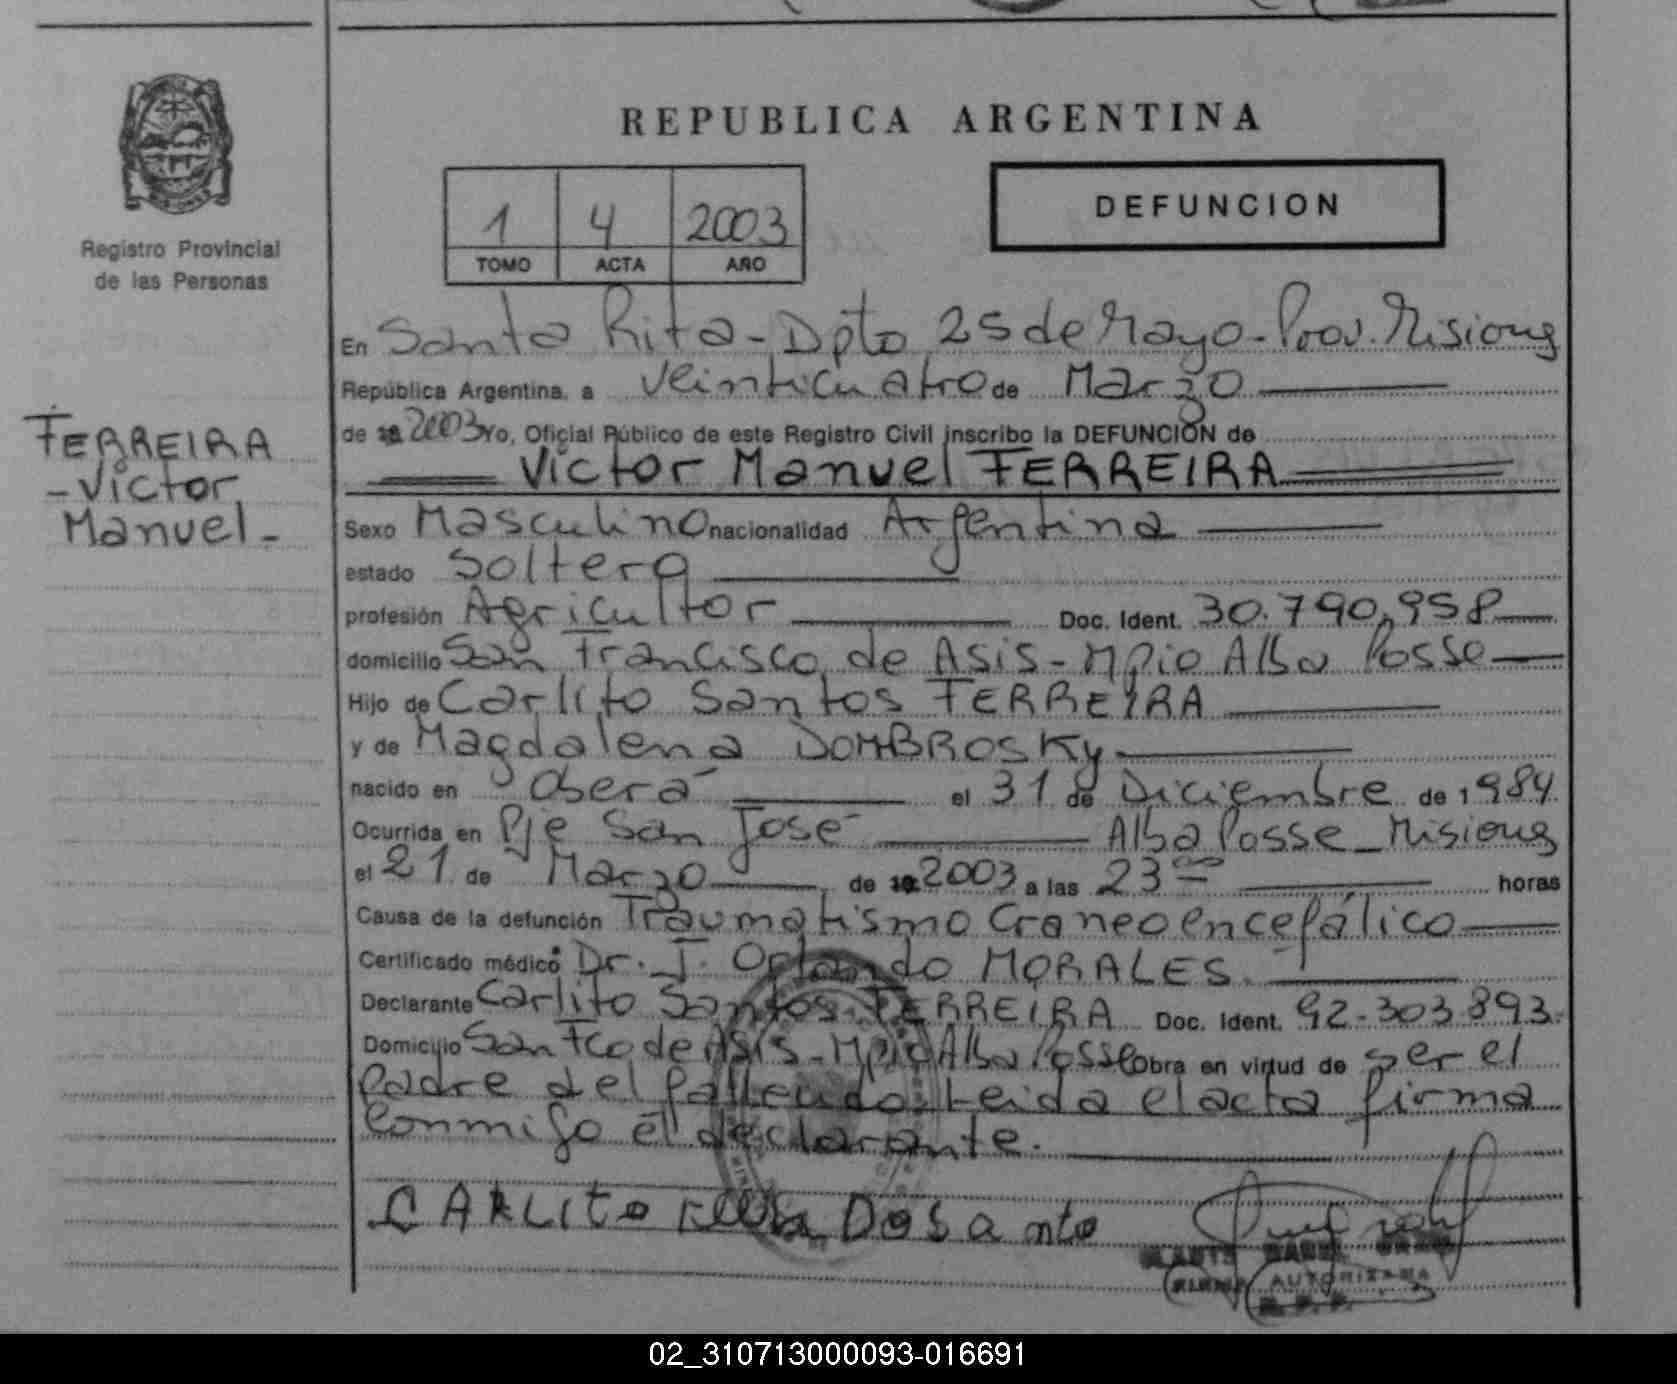 REPUBLICA ARGENTINA
DEFUNCION
1 4 2003
TOMO ACTA AÑO
Registro Provincial
de las Personas
FERREIRA
- Victor
Manuel -
En Santa Rita - Dpto 25 de Mayo - Prov. Misiones
República Argentina, a Veinticuatro de Marzo
de 2003 Yo, Oficial Público de este Registro Civil inscribo la DEFUNCION de
Victor Manuel FERREIRA
Sexo Masculino nacionalidad Argentina
estado Soltero
profesión Agricultor Doc. Ident. 30.790.958
domicilio San Francisco de Asis - Mpio Alba Posse
Hijo de Carlito Santos FERREIRA
y de Magdalena DOMBROSKy
nacido en Oberá el 31 de Diciembre de 1984
Ocurrida en Pje San José Alba Posse - Misiones
el 21 de Marzo de 2003 a las 23 00 horas
Causa de la defunción Traumatismo Craneoencefálico
Certificado médico Dr. J. Orlando MORALES.
Declarante Carlito Santos FERREIRA Doc. Ident. 92.303.893
Domicilio San Fco de Asis - Mpio Alba Posse Obra en virtud de ser el
Padre del fallecido. Leida el acta firma
Conmigo el declarante.
CARLITO DOSanto
FIRMA AUTORIZADA
02_310713000093-016691